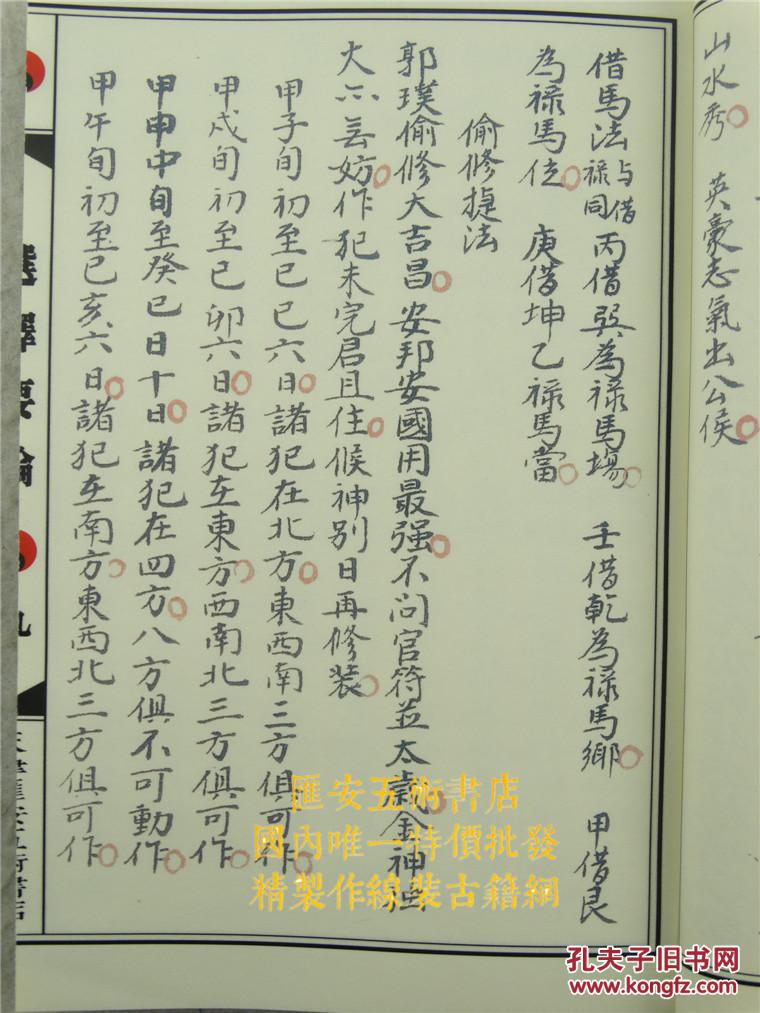 山水秀 英豪志氣出公侯
借馬法與借祿同 丙借巽為祿馬場 壬借乾為祿馬鄉 甲借艮
為祿馬位 庚借坤乙祿馬當
偷修捷法
郭璞偷修大吉昌 安邦安國用最强 不问官符並太歲 金神
大 妨 作犯未完君且住 候神別日再修装
甲子旬初至己巳六日 諸犯在北方 東西南三方俱可作
甲戍旬初至己卯六日 諸犯在東方 西南北三方俱可作
甲申中旬至癸巳日十日 諸犯在四方 八方俱不可動作
甲午旬初至已亥六日 諸犯在南方 東西北三方俱可作
選擇要論
九
匯安五術書店
國內唯一特價批發
精製作線裝古籍網
孔夫子旧书网
www.kongfz.com